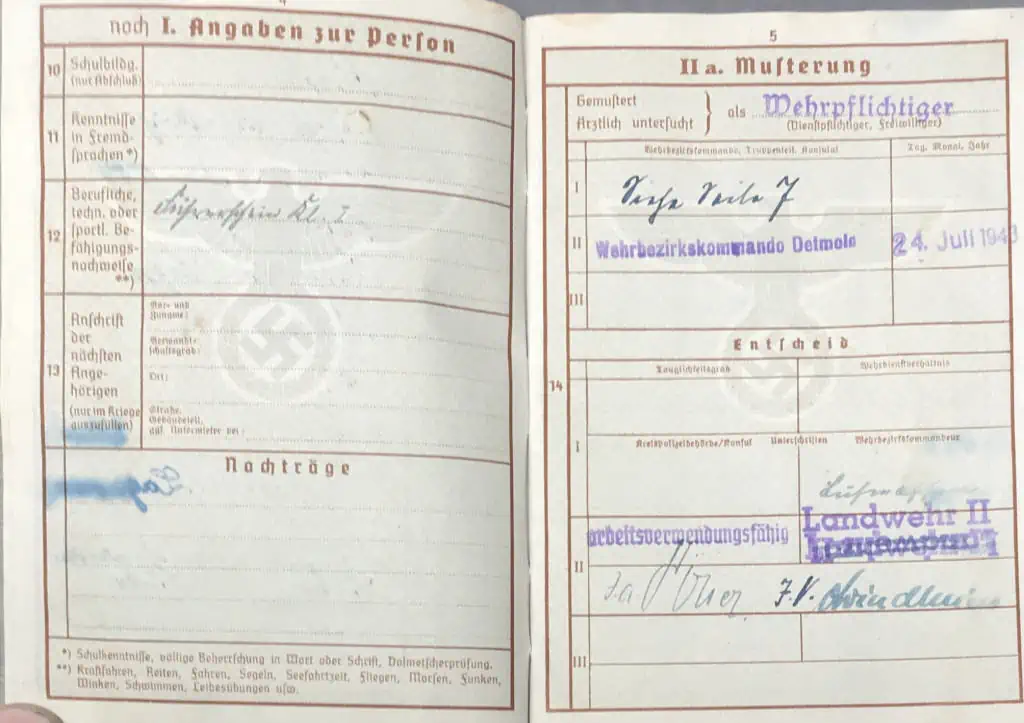 4
noch I. Angaben zur Person
10 Schulbildg.
(nur Abschluß)
11 Kenntnisse
in Fremd-
sprachen *)
12 Berufliche,
techn. oder
sportl. Be-
fähigungs-
nachweise
**)
Führerschein Kl. I
13 Anschrift
der
nächsten
Ange-
hörigen
(nur im Kriege
auszufüllen)
Vor- und
Zuname:
Verwandt-
schaftsgrad:
Ort:
Straße,
Gebäudeteil,
ggf. Untermieter bei:
Nachträge
*) Schulkenntnisse, völlige Beherrschung in Wort oder Schrift, Dolmetscherprüfung.
**) Kraftfahren, Reiten, Fahren, Segeln, Seefahrtzeit, Fliegen, Morsen, Funken,
Winken, Schwimmen, Leibesübungen usw.
5
II a. Musterung
Gemustert
Ärztlich untersucht
als Wehrpflichtiger
(Dienstpflichtiger, Freiwilliger)
Wehrbezirkskommando, Truppenteil, Konsulat
Tag, Monat, Jahr
I Siehe Seite 7
II Wehrbezirkskommando Detmold 24. Juli 1943
III
Entscheid
14
Tauglichkeitsgrad
Wehrdienstverhältnis
I
Kreispolizeibehörde/Konsul Unterschriften Wehrbezirkskommandeur
II
arbeitsverwendungsfähig
Landwehr II
J.V.
III